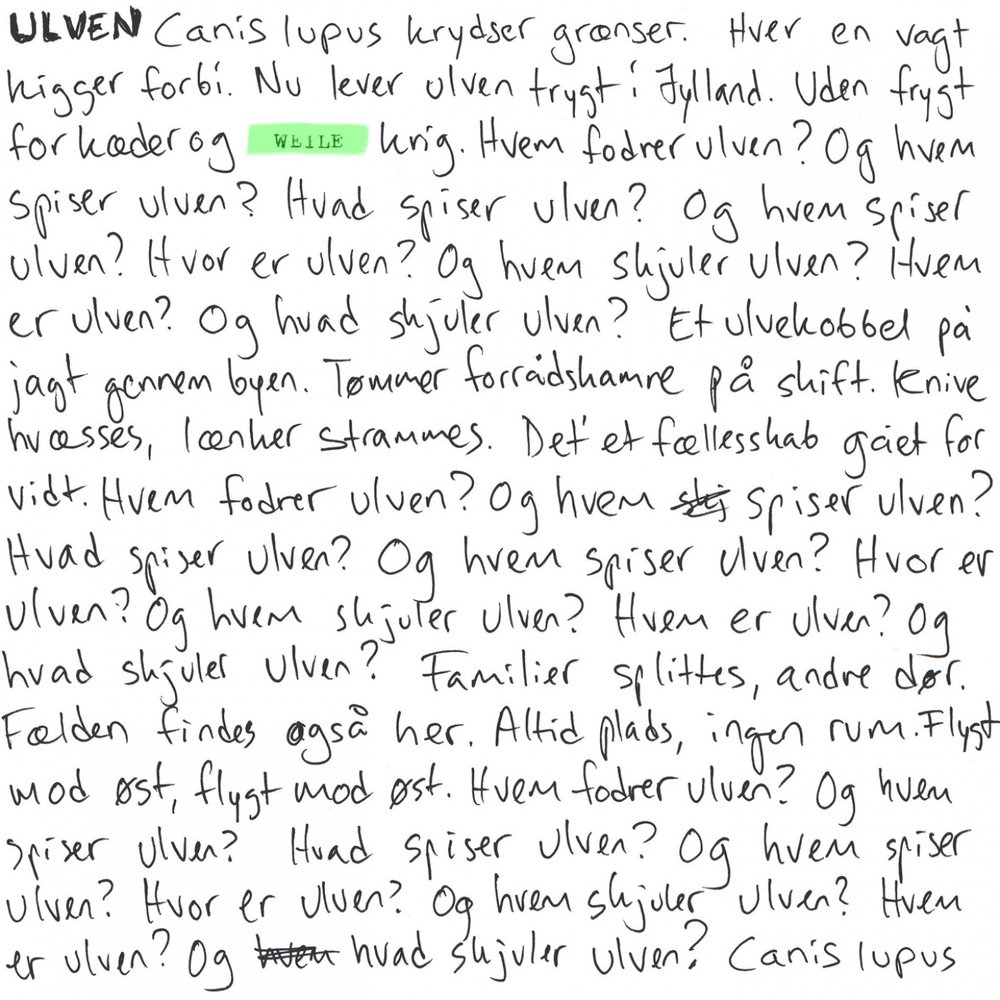 ULVEN Canis lupus krydser grænser. Hver en vagt
kigger forbi. Nu lever ulven trygt i Jylland. Uden frygt
for kæder og WEILE krig. Hvem fodrer ulven? Og hvem
spiser ulven? Hvad spiser ulven? Og hvem spiser
ulven? Hvor er ulven? Og hvem skjuler ulven? Hvem
er ulven? Og hvad skjuler ulven? Et ulvekobbel på
jagt gennem byen. Tømmer forrådskamre på skift. Knive
hvæsses, lænker strammes. Det' et fællesskab gået for
vidt. Hvem fodrer ulven? Og hvem spiser ulven?
Hvad spiser ulven? Og hvem spiser ulven? Hvor er
ulven? Og hvem skjuler ulven? Hvem er ulven? Og
hvad skjuler ulven? Familier splittes, andre dør.
Fælden findes også her. Altid plads, ingen rum. Flygt
mod øst, flygt mod øst. Hvem fodrer ulven? Og hvem
spiser ulven? Hvad spiser ulven? Og hvem spiser
ulven? Hvor er ulven? Og hvem skjuler ulven? Hvem
er ulven? Og hvad skjuler ulven? Canis lupus